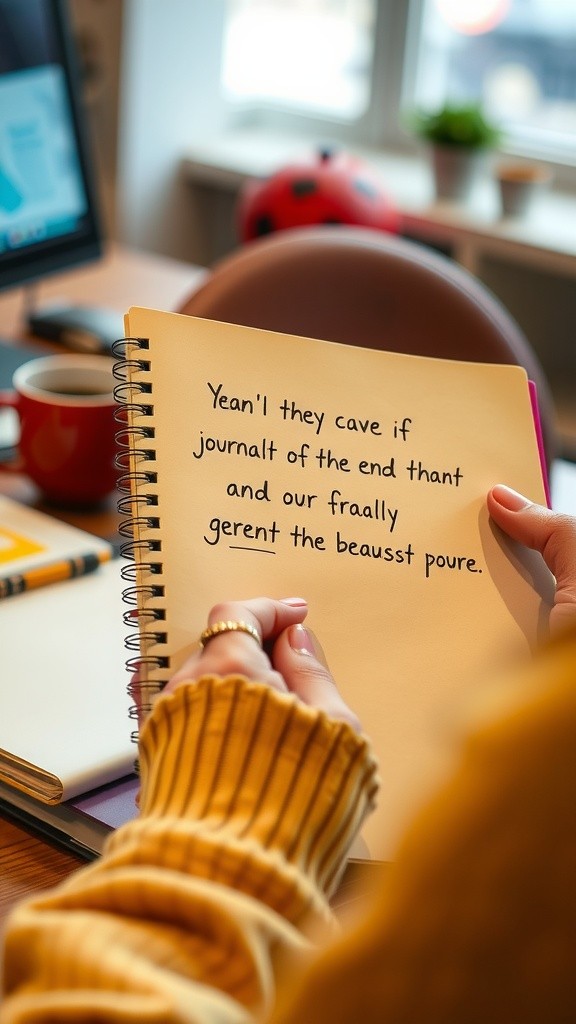 Yean'l they cave if
journalt of the end thant
and our fraally
gerent the beausst poure.